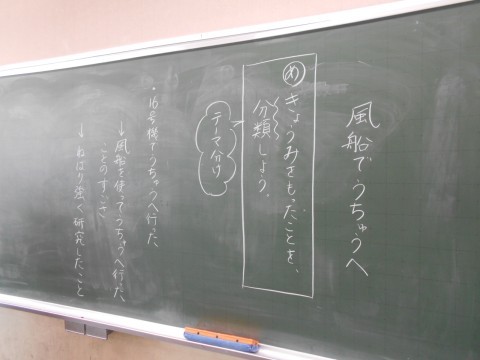 風船でうちゅうへ
め きょうみをもったことを、
分類しよう。
テーマ分け
・16号機でうちゅうへ行った
→風船を使ってうちゅうへ行った
ことのすごさ
→ねばり強く研究したこと